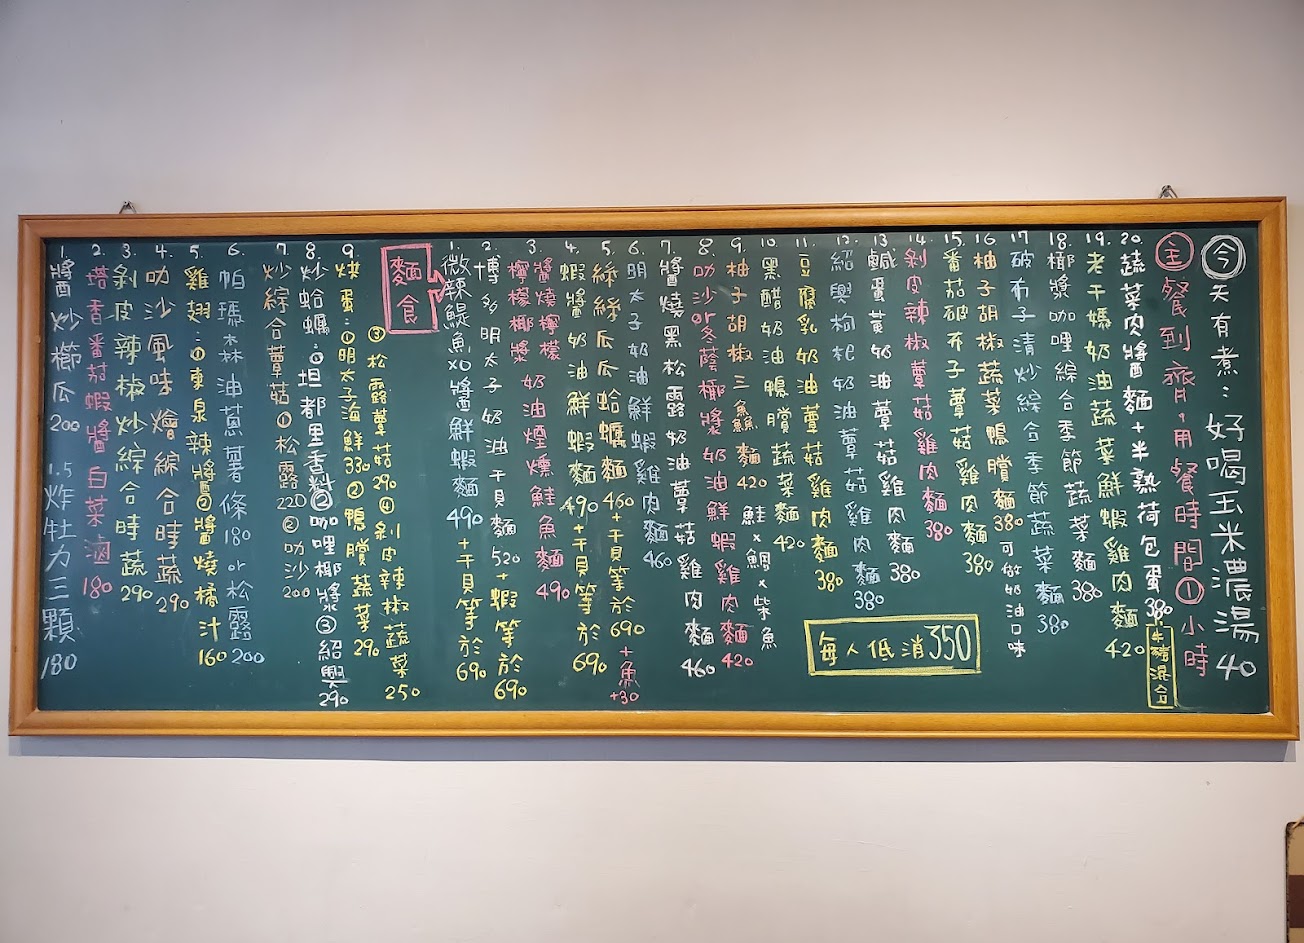 1. 醬炒櫛瓜 200
1.5 炸牡力三顆 180
2. 塔香番茄蝦醬白菜滷 180
3. 剝皮辣椒炒綜合時蔬 290
4. 叻沙風味燴綜合時蔬 290
5. 雞翅:①東泉辣醬②醬燒橘汁 160
6. 帕瑪森油蔥薯條 180 or 松露 200
7. 炒綜合蕈菇①松露 220 ②叻沙 200
8. 炒蛤蠣:①坦都里香料②咖哩椰漿③紹興 290
9. 烘蛋:①明太子海鮮 330 ②鴨賞蔬菜 290
③松露蕈菇 290 ④剝皮辣椒蔬菜 250
麵食
1. 微辣鯷魚XO醬鮮蝦麵 490 +干貝等於 690
2. 博多明太子奶油干貝麵 520 +蝦等於 690
3. 醬燒檸檬
檸檬椰漿 奶油煙燻鮭魚麵 490
4. 蝦醬奶油鮮蝦麵 490 +干貝等於 690
5. 絲絲瓜瓜蛤蠣麵 460 +干貝等於 690 +魚 +30
6. 明太子奶油鮮蝦雞肉麵 460
7. 醬燒黑松露奶油蕈菇雞肉麵 460
8. 叻沙or冬蔭椰漿奶油鮮蝦雞肉麵 420
9. 柚子胡椒三魚麵 420 鮭x鯛x柴魚
10. 黑醋奶油鴨賞蔬菜麵 420
11. 豆腐乳奶油蕈菇雞肉麵 380
12. 紹興枸杞奶油蕈菇雞肉麵 380
13. 鹹蛋黃奶油蕈菇雞肉麵 380
14. 剝皮辣椒蕈菇雞肉麵 380
15. 番茄破布子蕈菇雞肉麵 380
16. 柚子胡椒蔬菜鴨賞麵 380 可做奶油口味
17. 破布子清炒綜合季節蔬菜麵 380
18. 椰漿咖哩綜合季節蔬菜麵 380
19. 老干媽奶油蔬菜鮮蝦雞肉麵 420
20. 蔬菜肉醬麵+半熟荷包蛋 380 牛豬混合
主餐到齊,用餐時間①小時
今天有煮:好喝玉米濃湯 40
每人低消350